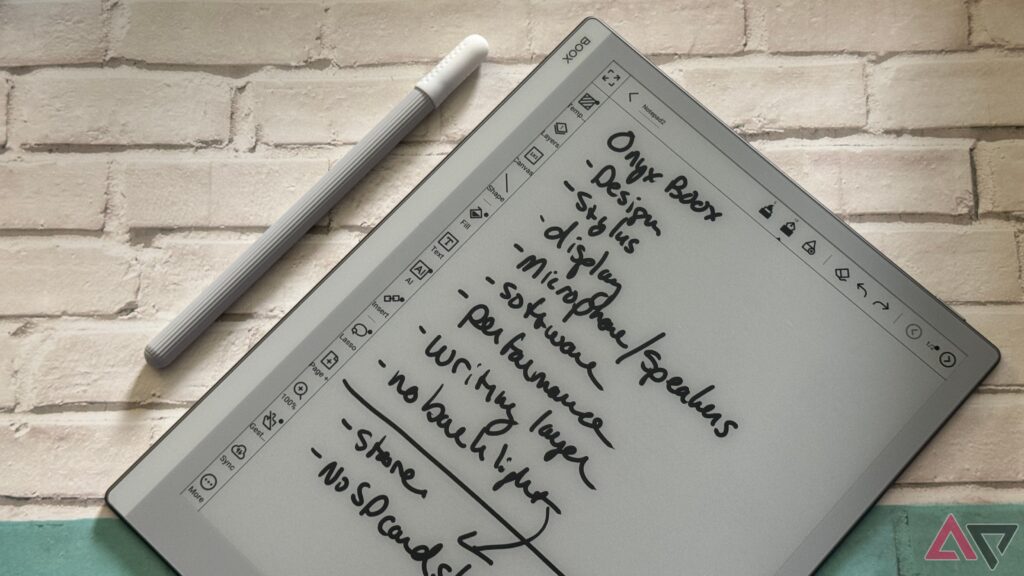 BOOX
Notepad2
Temp...
Layers
Canvas
Shape
Fill
Text
AI
AI
Insert
Lasso
Page +
100%
Gest...
Sync
More
Onyx Boox
- Design
- Stylus
- display
- Microphone/Speakers
- software
- performance
- writing layer
- no backlight
- store
- No SD card